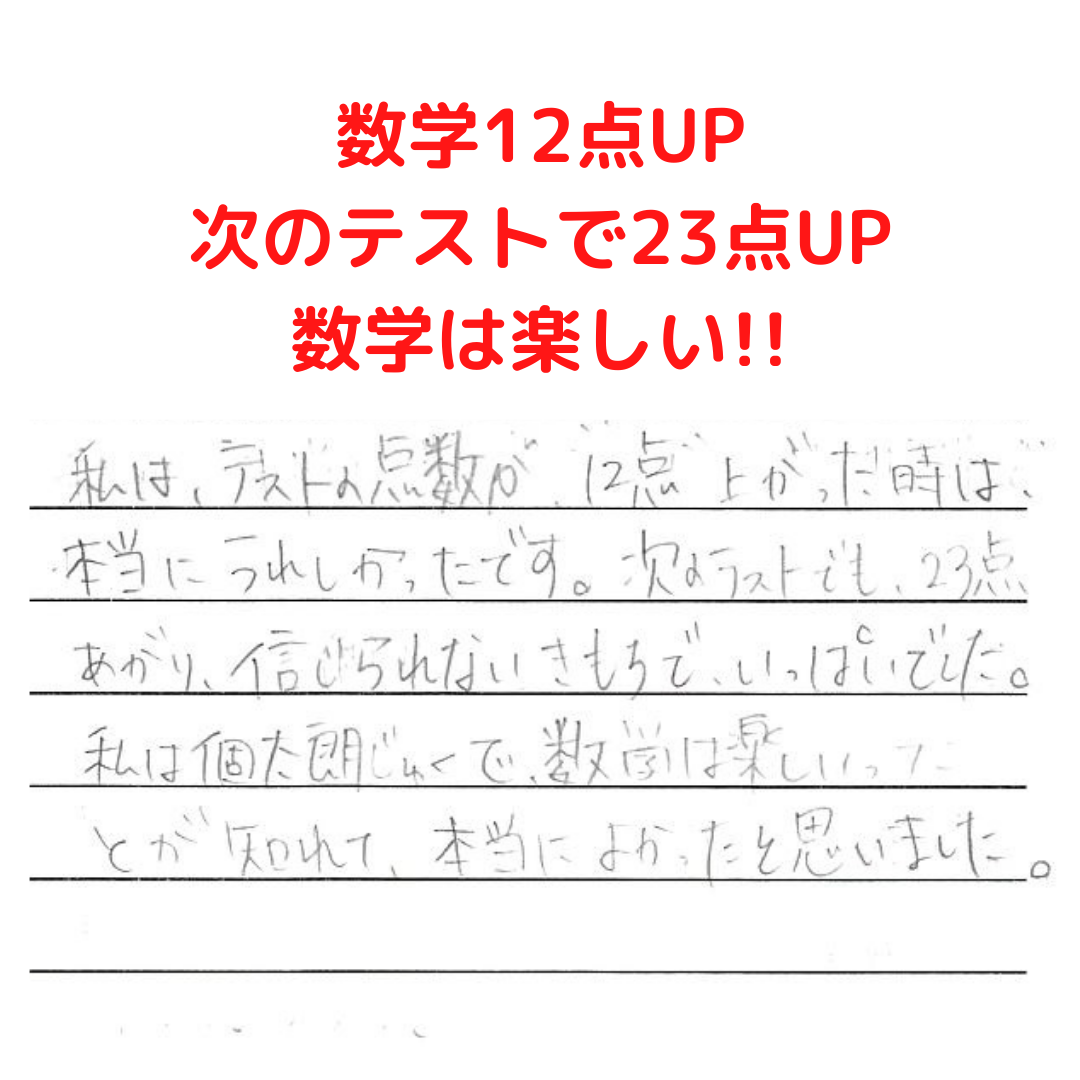 数学12点UP
次のテストで23点UP
数学は楽しい!!
私は、テストの点数が、12点上がった時は、
本当にうれしかったです。次のテストでも、23点
あがり、信じられないきもちで、いっぱいでした。
私は個太朗じゅくで、数学は楽しいった
とが知れて、本当によかったと思いました。